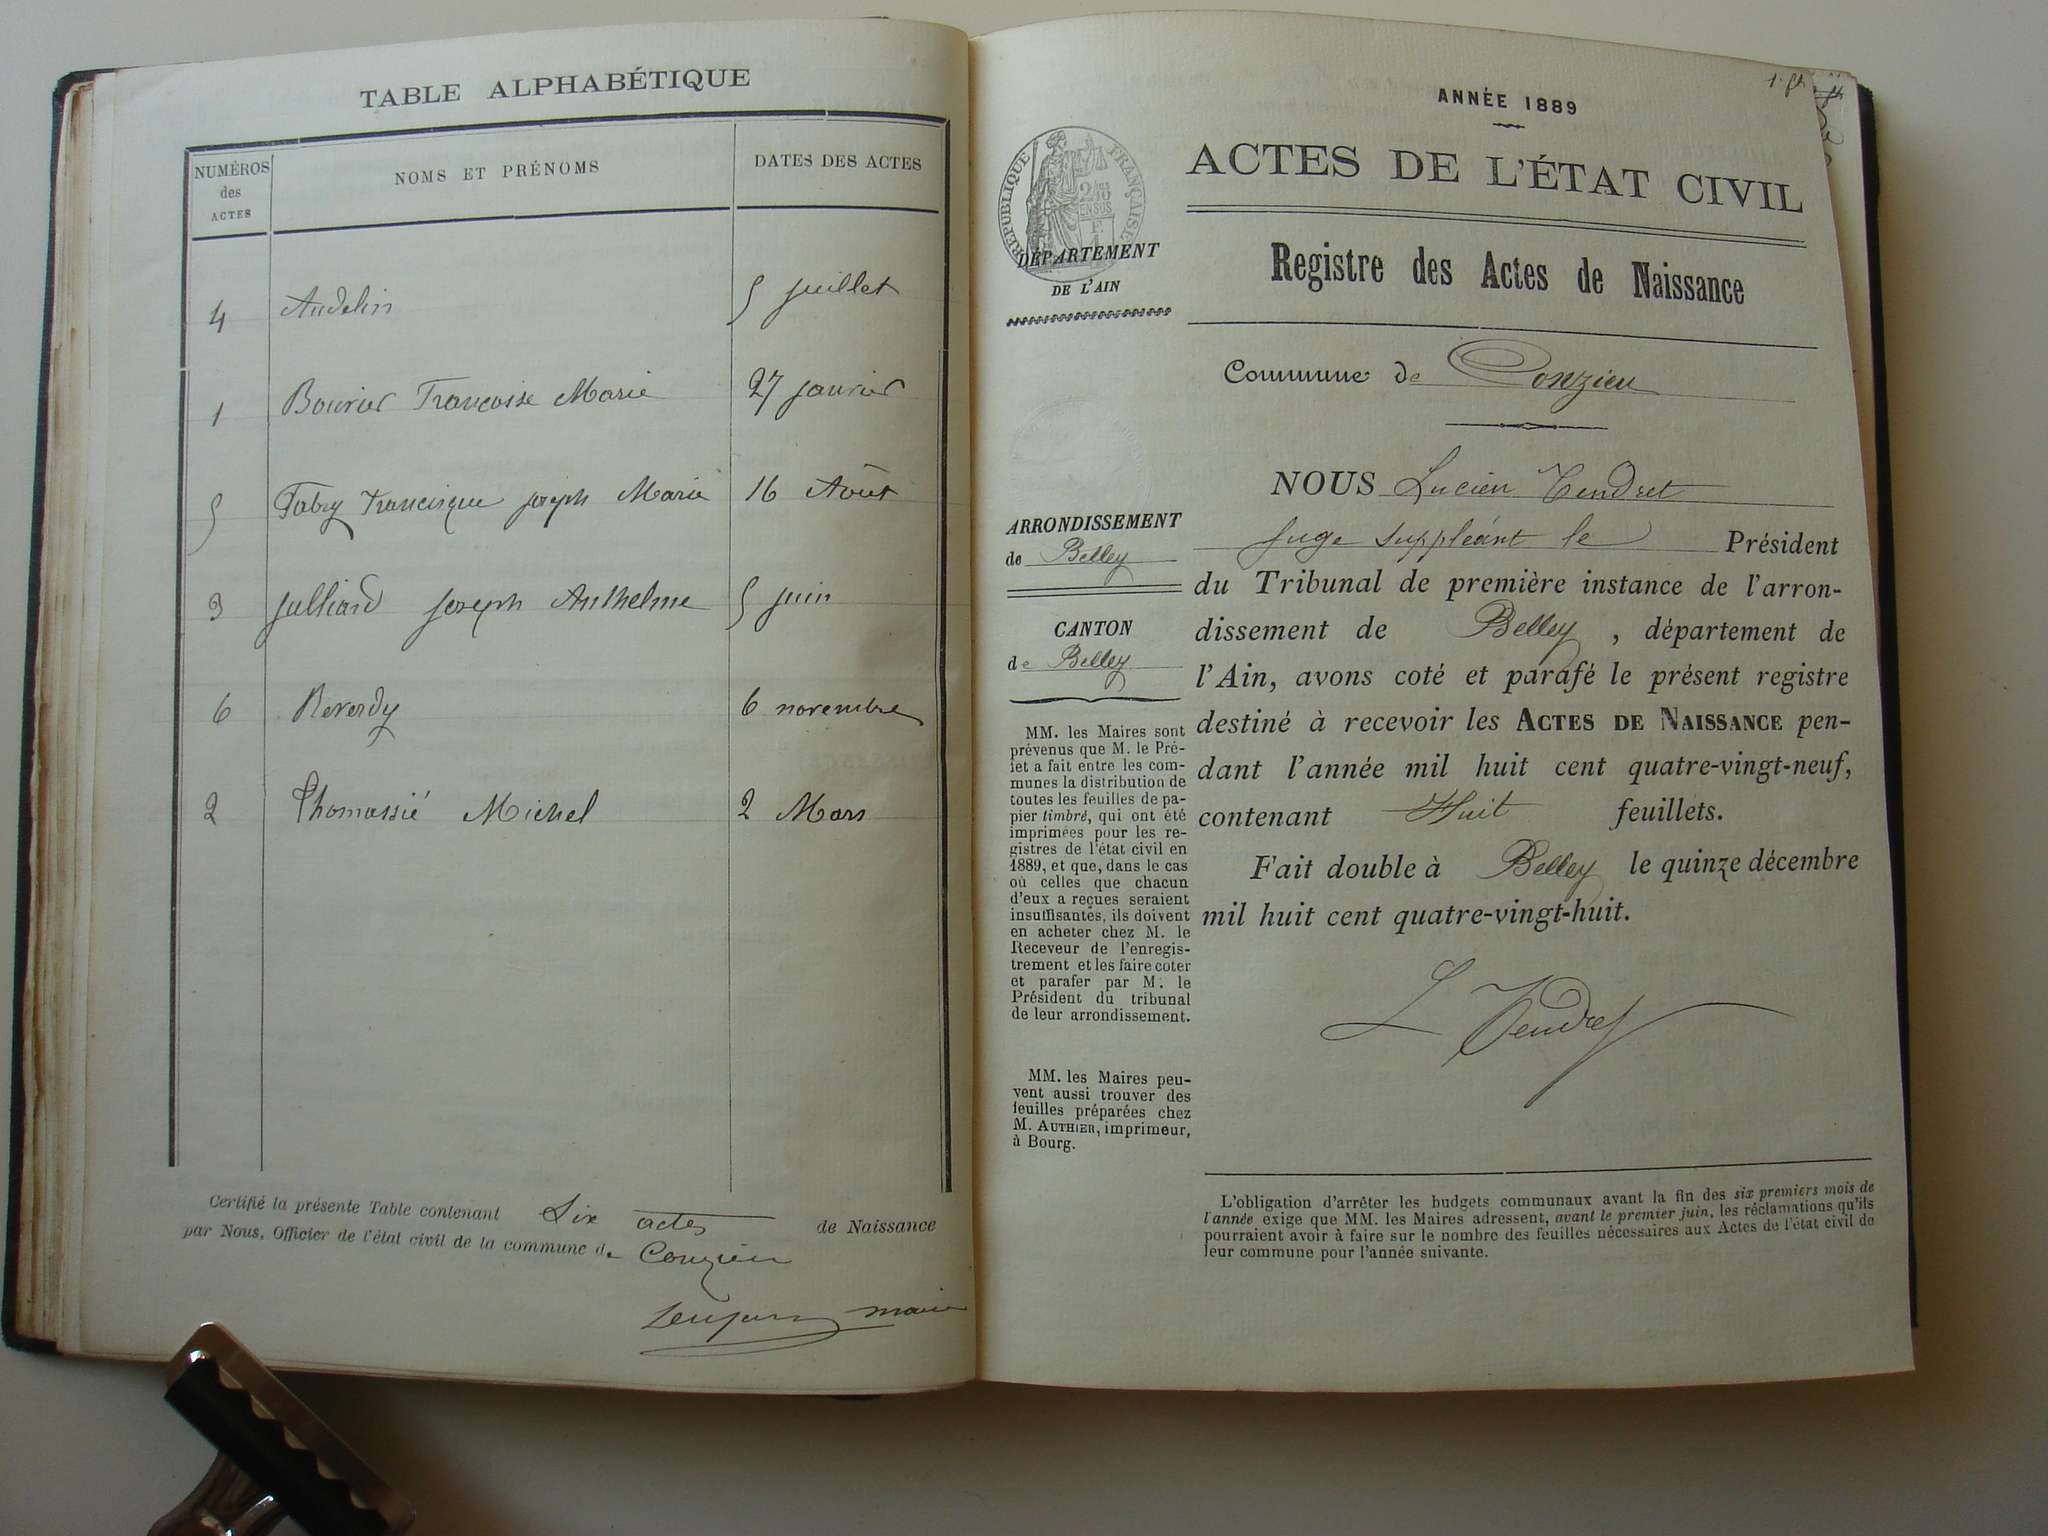 TABLE ALPHABÉTIQUE
NUMÉROS des ACTES
NOMS ET PRÉNOMS
DATES DES ACTES
4 Audelin 5 juillet
1 Bouvier Françoise Marie 27 janvier
5 Fabry Francisque Joseph Marie 16 Août
3 Julliard Joseph Anthelme 5 juin
6 Reverdy 6 novembre
2 Thomassié Michel 2 Mars
Certifié la présente Table contenant Six actes de Naissance
par Nous, Officier de l'état civil de la commune de Conzieu
maire
ANNÉE 1889
ACTES DE L'ÉTAT CIVIL
Registre des Actes de Naissance
RÉPUBLIQUE FRANÇAISE
DÉPARTEMENT
DE L'AIN
Commune de Conzieu
NOUS Lucien Tendret
juge suppléant le Président
du Tribunal de première instance de l'arron-
dissement de Belley, département de
l'Ain, avons coté et parafé le présent registre
destiné à recevoir les ACTES DE NAISSANCE pen-
dant l'année mil huit cent quatre-vingt-neuf,
contenant Huit feuillets.
Fait double à Belley le quinze décembre
mil huit cent quatre-vingt-huit.
L Tendret
ARRONDISSEMENT
de Belley
CANTON
de Belley
MM. les Maires sont
prévenus que M. le Pré-
fet a fait entre les com-
munes la distribution de
toutes les feuilles de pa-
pier timbré, qui ont été
imprimées pour les re-
gistres de l'état civil en
1889, et que, dans le cas
où celles que chacun
d'eux a reçues seraient
insuffisantes, ils doivent
en acheter chez M. le
Receveur de l'enregis-
trement et les faire coter
et parafer par M. le
Président du tribunal
de leur arrondissement.
MM. les Maires peu-
vent aussi trouver des
feuilles préparées chez
M. AUTHIER, imprimeur,
à Bourg.
L'obligation d'arrêter les budgets communaux avant la fin des six premiers mois de
l'année exige que MM. les Maires adressent, avant le premier juin, les réclamations qu'ils
pourraient avoir à faire sur le nombre des feuilles nécessaires aux Actes de l'état civil de
leur commune pour l'année suivante.